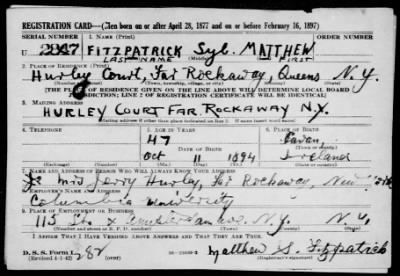 REGISTRATION CARD—(Men born on or after April 28, 1877 and on or before February 16, 1897)
SERIAL NUMBER 1. NAME (Print) ORDER NUMBER
U 2847 FITZPATRICK Syl. MATTHEW
LAST NAME (Middle) FIRST
2. PLACE OF RESIDENCE (Print)
Hurley Court, Far Rockaway, Queens N.Y.
(Number and street) (Town, township, village, or city) (County) (State)
[THE PLACE OF RESIDENCE GIVEN ON THE LINE ABOVE WILL DETERMINE LOCAL BOARD
JURISDICTION; LINE 2 OF REGISTRATION CERTIFICATE WILL BE IDENTICAL]
3. MAILING ADDRESS
HURLEY COURT FAR ROCKAWAY N.Y.
[Mailing address if other than place indicated on line 2. If same insert word same]
4. TELEPHONE 5. AGE IN YEARS 6. PLACE OF BIRTH
47 Cavan
DATE OF BIRTH (Town or county)
Oct 11 1894 Ireland
(Exchange) (Number) (Mo.) (Day) (Yr.) (State or country)
7. NAME AND ADDRESS OF PERSON WHO WILL ALWAYS KNOW YOUR ADDRESS
Mrs Jerry Hurley, Far Rockaway, New York
8. EMPLOYER'S NAME AND ADDRESS
Columbia University
9. PLACE OF EMPLOYMENT OR BUSINESS
115 St x Amsterdam Ave. N.Y. N.Y.
(Number and street or R. F. D. number) (Town) (County) (State)
I AFFIRM THAT I HAVE VERIFIED ABOVE ANSWERS AND THAT THEY ARE TRUE.
D. S. S. Form 1
(Revised 4-1-42)
Matthew S. Fitzpatrick